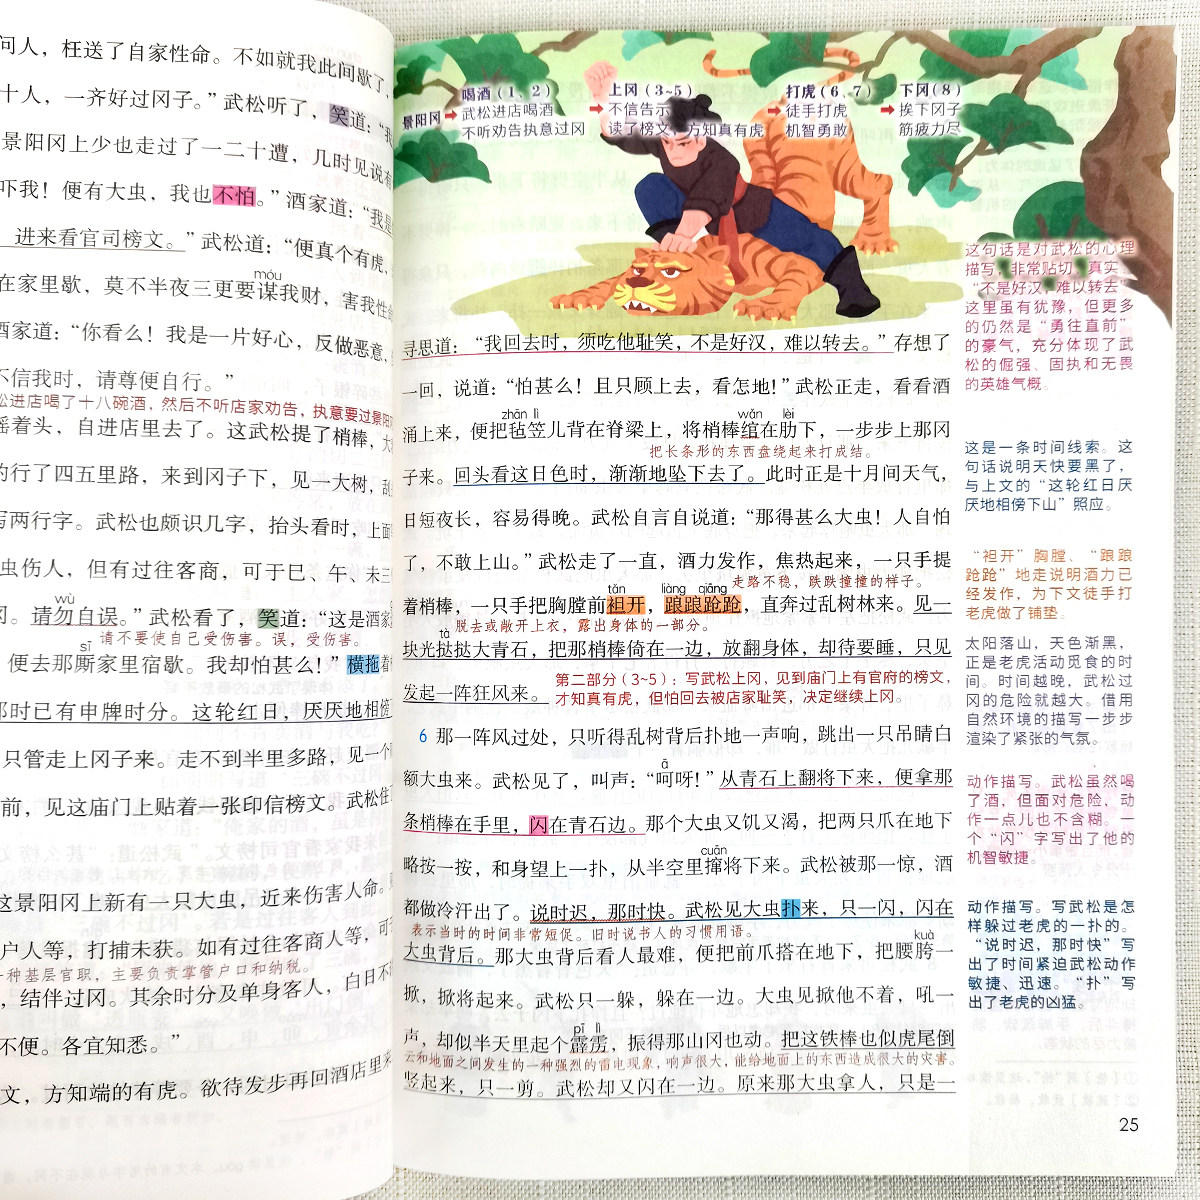 问人，枉送了自家性命。不如就我此间歇了，
十人，一齐好过冈子。”武松听了，笑道：“我
景阳冈上少也走过了一二十遭，几时见说有
吓我！便有大虫，我也不怕。”酒家道：“我是
进来看官司榜文。”武松道：“便真个有虎，
móu
在家里歇，莫不半夜三更要谋我财，害我性
酒家道：“你看么！我是一片好心，反做恶意，
不信我时，请尊便自行。”
松进店喝了十八碗酒，然后不听店家劝告，执意要过景阳
摇着头，自进店里去了。这武松提了梢棒，大
的行了四五里路，来到冈子下，见一大树，刮
写两行字。武松也颇识几字，抬头看时，上面
虫伤人，但有过往客商，可于巳、午、未三
wù
冈。请勿自误。”武松看了，笑道：“这是酒家
请不要使自己受伤害。误，受伤害。
sī
便去那厮家里宿歇。我却怕甚么！”横拖着
那时已有申牌时分。这轮红日，厌厌地相傍
只管走上冈子来。走不到半里多路，见一个
前，见这庙门上贴着一张印信榜文。武松住
这景阳冈上新有一只大虫，近来伤害人命。
户人等，打捕未获。如有过往客商人等，可
一种基层官职，主要负责掌管户口和纳税。
，结伴过冈。其余时分及单身客人，白日不
不便。各宜知悉。”
文，方知端的有虎。欲待发步再回酒店里来
景阳冈
喝酒（1、2）
武松进店喝酒
不听劝告执意过冈
上冈（3~5）
不信告示
读了榜文，方知真有虎
打虎（6、7）
徒手打虎
机智勇敢
下冈（8）
挨下冈子
筋疲力尽
寻思道：“我回去时，须吃他耻笑，不是好汉，难以转去。”存想了
一回，说道：“怕甚么！且只顾上去，看怎地！”武松正走，看看酒
zhān lì wǎn lèi
涌上来，便把毡笠儿背在脊梁上，将梢棒绾在肋下，一步步上那冈
把长条形的东西盘绕起来打成结。
子来。回头看这日色时，渐渐地坠下去了。此时正是十月间天气，
日短夜长，容易得晚。武松自言自说道：“那得甚么大虫！人自怕
了，不敢上山。”武松走了一直，酒力发作，焦热起来，一只手提
走路不稳，跌跌撞撞的样子。
tǎn liàng qiàng
着梢棒，一只手把胸膛前袒开，踉踉跄跄，直奔过乱树林来。见一
脱去或敞开上衣，露出身体的一部分。
tà
块光挞挞大青石，把那梢棒倚在一边，放翻身体，却待要睡，只见
发起一阵狂风来。
第二部分（3~5）：写武松上冈，见到庙门上有官府的榜文，
才知真有虎，但怕回去被店家耻笑，决定继续上冈。
6 那一阵风过处，只听得乱树背后扑地一声响，跳出一只吊睛白
ā
额大虫来。武松见了，叫声：“呵呀！”从青石上翻将下来，便拿那
条梢棒在手里，闪在青石边。那个大虫又饥又渴，把两只爪在地下
cuān
略按一按，和身望上一扑，从半空里撺将下来。武松被那一惊，酒
都做冷汗出了。说时迟，那时快。武松见大虫扑来，只一闪，闪在
表示当时的时间非常短促。旧时说书人的习惯用语。
kuà
大虫背后。那大虫背后看人最难，便把前爪搭在地下，把腰胯一
掀，掀将起来。武松只一躲，躲在一边。大虫见掀他不着，吼一
pī lì
声，却似半天里起个霹雳，振得那山冈也动。把这铁棒也似虎尾倒
云和地面之间发生的一种强烈的雷电现象，响声很大，能给地面上的东西造成很大的灾害。
竖起来，只一剪。武松却又闪在一边。原来那大虫拿人，只是一
这句话是对武松的心理
描写，非常贴切、真实。
“不是好汉，难以转去”
这里虽有犹豫，但更多
的仍然是“勇往直前”
的豪气，充分体现了武
松的倔强、固执和无畏
的英雄气概。
这是一条时间线索。这
句话说明天快要黑了，
与上文的“这轮红日厌
厌地相傍下山”照应。
“袒开”胸膛、“踉踉
跄跄”地走说明酒力已
经发作，为下文徒手打
老虎做了铺垫。
太阳落山，天色渐黑，
正是老虎活动觅食的时
间。时间越晚，武松过
冈的危险就越大。借用
自然环境的描写一步步
渲染了紧张的气氛。
动作描写。武松虽然喝
了酒，但面对危险，动
作一点儿也不含糊。一
个“闪”字写出了他的
机智敏捷。
动作描写。写武松是怎
样躲过老虎的一扑的。
“说时迟，那时快”写
出了时间紧迫武松动作
敏捷、迅速。“扑”写
出了老虎的凶猛。
25